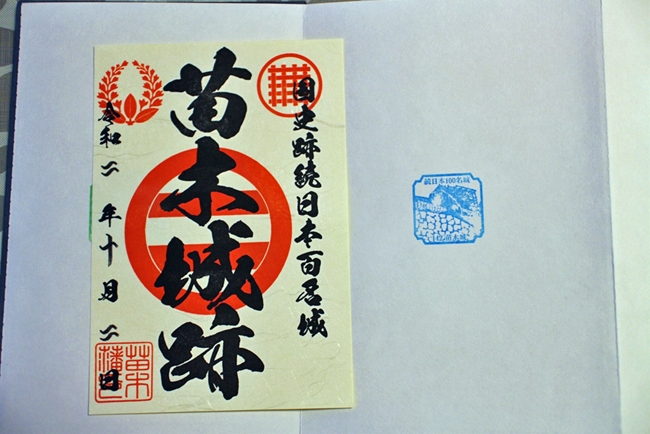 国史跡続日本百名城
苗木城跡
令和二年十月二日
苗木
続日本100名城
苗木城